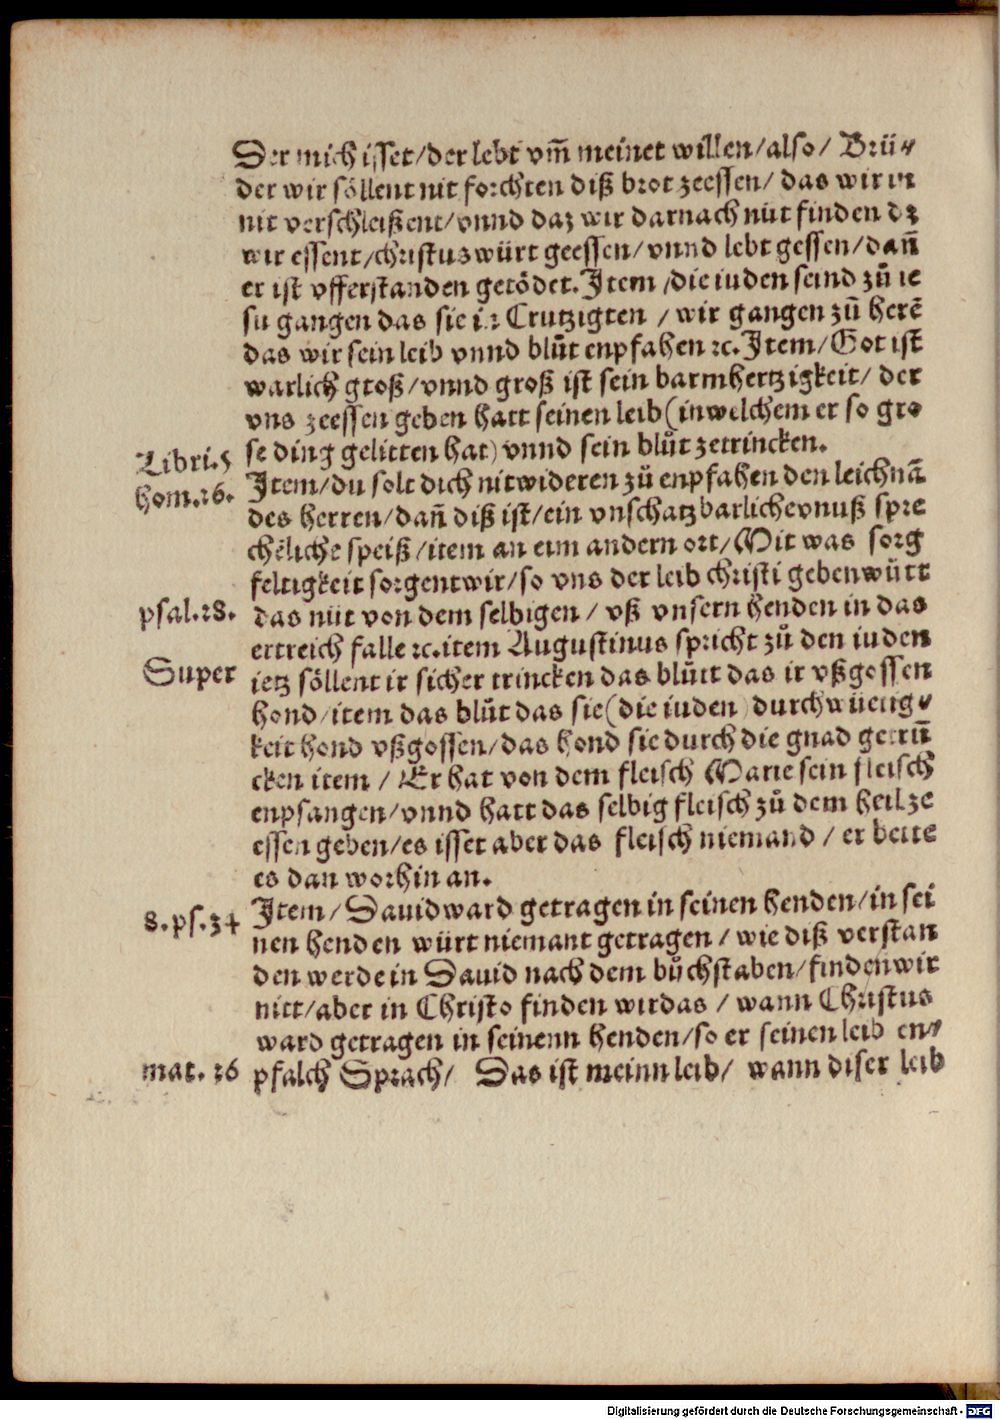 Der mich isset/der lebt vm̃ meinet willen/also/ Brü⸗
der wir söllent nit forchten diß brot zeessen/ das wir in
nit verschleißent/vnnd daz wir darnach nüt finden dz
wir essent/christus würt geessen/vnnd lebt gessen/dañ
er ist vfferstanden getödet. Item /die iuden seind zů ie
su gangen das sie in Crutzigten / wir gangen zů herē
das wir sein leib vnnd blůt enpfahen ꝛc. Item/Got ist
warlich groß/vnnd groß ist sein barmhertzigkeit/ der
vns zeessen geben hatt seinen leib(in welchem er so gro
se ding gelitten hat) vnnd sein blůt zetrincken.
Libri.5
hom.26.
Item/du solt dich nit wideren zů enpfahen den leichnā
des herren/dañ diß ist/ein vnschatzbarliche vnuß spre
chēliche speiß/item an eim andern ort/Mit was sorg
feltigkeit sorgent wir/so vns der leib christi geben würt
psal.28.
das nüt von dem selbigen / vß vnsern henden in das
ertreich falle ꝛc.item Augustinus spricht zů den iuden
Super
ietz söllent ir sicher trincken das blůt das ir vßgossen
hond/item das blůt das sie(die iuden) durch wüetig⸗
keit hond vßgossen/das hond sie durch die gnad getrū
cken item / Er hat von dem fleisch Marie sein fleisch
enpfangen/vnnd hatt das selbig fleisch zů dem heil ze
essen geben/es isset aber das fleisch niemand / er bette
es dan vorhin an.
8.ps.34
Item/ Dauid ward getragen in seinen henden/in sei
nen henden würt niemant getragen / wie diß verstan
den werde in Dauid nach dem bůchstaben/finden wir
nitt/aber in Christo finden wir das / wann Christus
ward getragen in seinenn henden/so er seinen leib en⸗
mat. 26
pfalch Sprach/ Das ist meinn leib/ wann diser leib
Digitalisierung gefördert durch die Deutsche Forschungsgemeinschaft - DFG